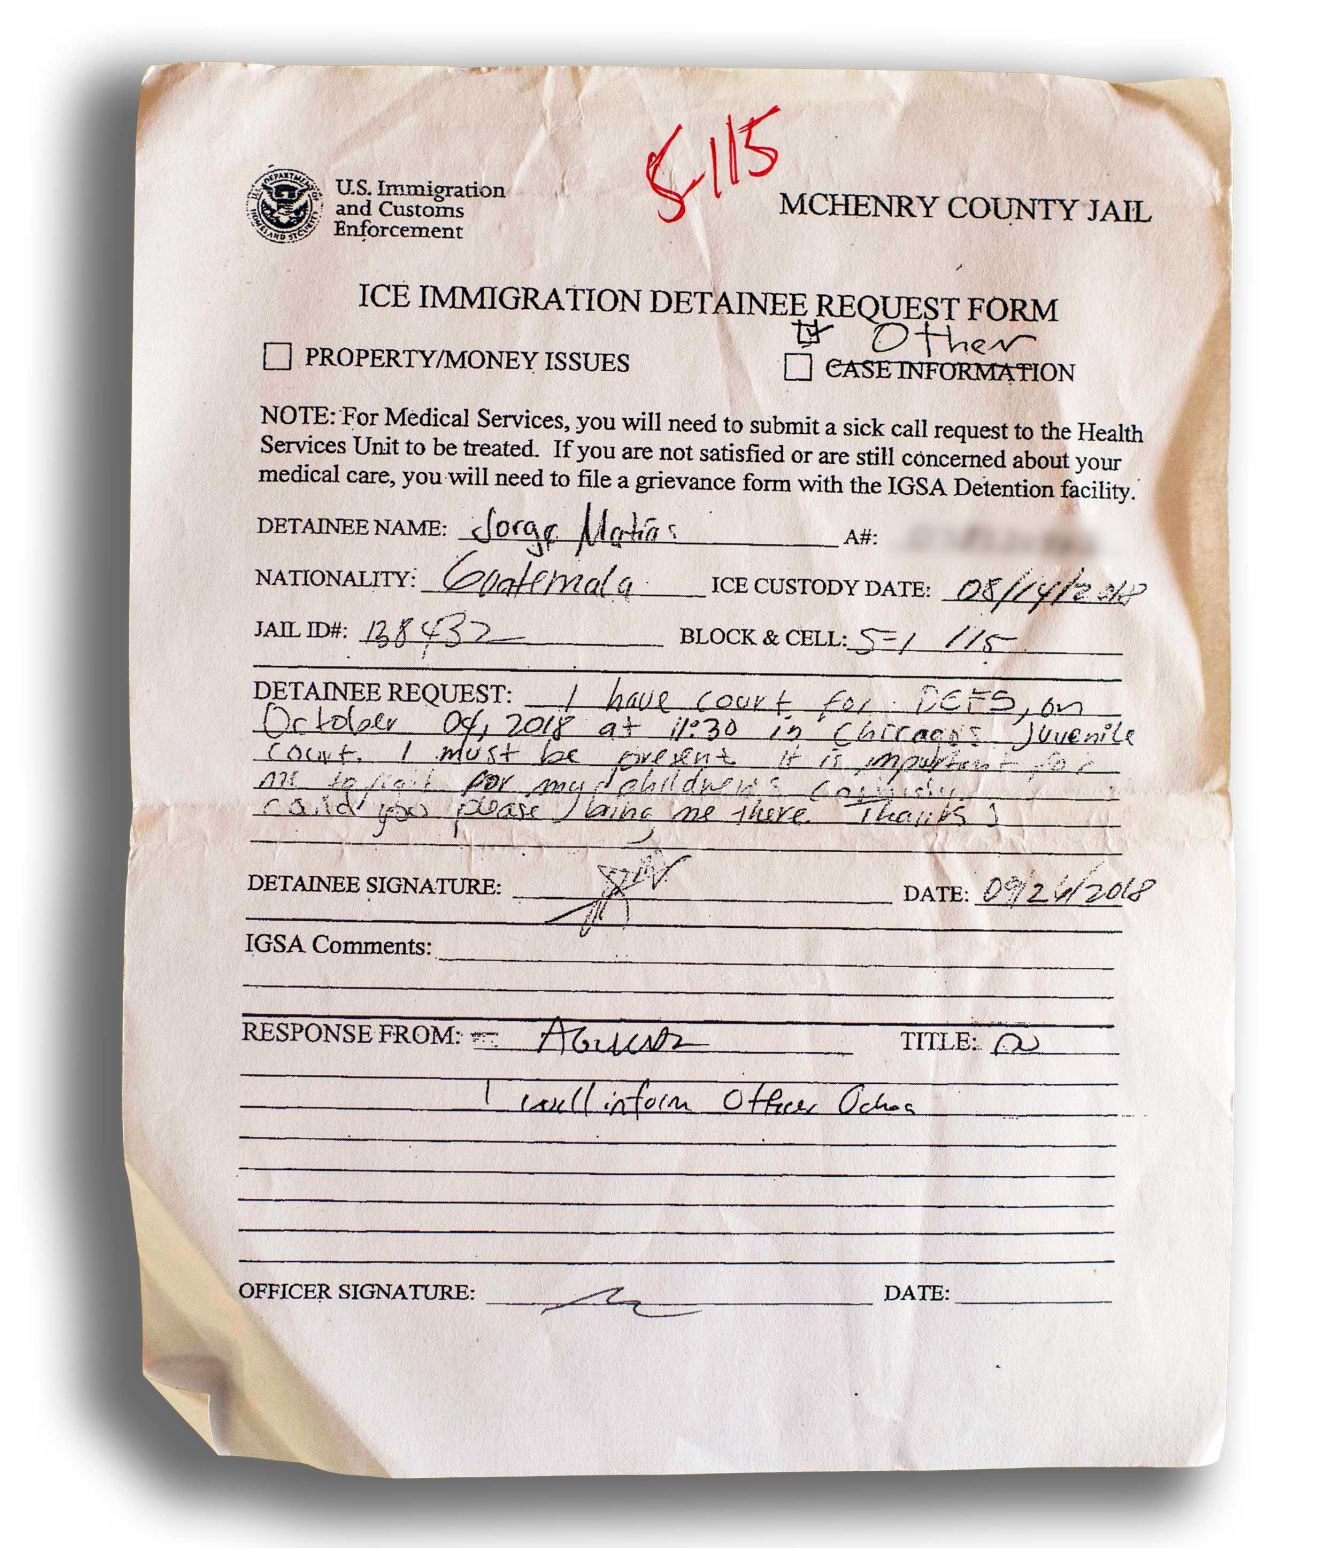 5-115
U.S. Immigration
and Customs
Enforcement
MCHENRY COUNTY JAIL
ICE IMMIGRATION DETAINEE REQUEST FORM
Other
PROPERTY/MONEY ISSUES
CASE INFORMATION
NOTE: For Medical Services, you will need to submit a sick call request to the Health
Services Unit to be treated. If you are not satisfied or are still concerned about your
medical care, you will need to file a grievance form with the IGSA Detention facility.
DETAINEE NAME: Jorge Matias A#:
NATIONALITY: Guatemala ICE CUSTODY DATE: 08/14/2018
JAIL ID#: 138432 BLOCK & CELL: 5-1 115
DETAINEE REQUEST: I have court for DCFS, on
October 04, 2018 at 11:30 in Chicago's Juvenile
court. I must be present it is important for
me to fight for my children's
could you please bring me there. Thanks
DETAINEE SIGNATURE: DATE: 09/26/2018
IGSA Comments:
RESPONSE FROM: TITLE:
I will inform Officer Ochoa
OFFICER SIGNATURE: DATE: